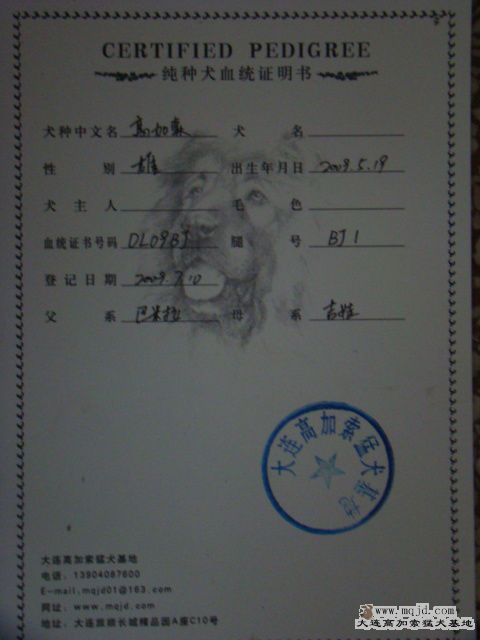 CERTIFIED PEDIGREE
纯种犬血统证明书
犬种中文名 高加索 犬 名
性 别 雄 出生年月日 2009.5.19
犬 主 人 毛 色
血统证书号码 DL09BJ 腿 号 BJ1
登记日期 2009.7.10
父 系 巴米拉 母 系 吉娃
大连高加索猛犬基地
大连高加索猛犬基地
电话：13904087600
E-mail.mqjd01@163.com
网址：www.mqjd.com
地址：大连旅顺长城精品园A座C10号
www.mqjd.com
大连高加索猛犬基地